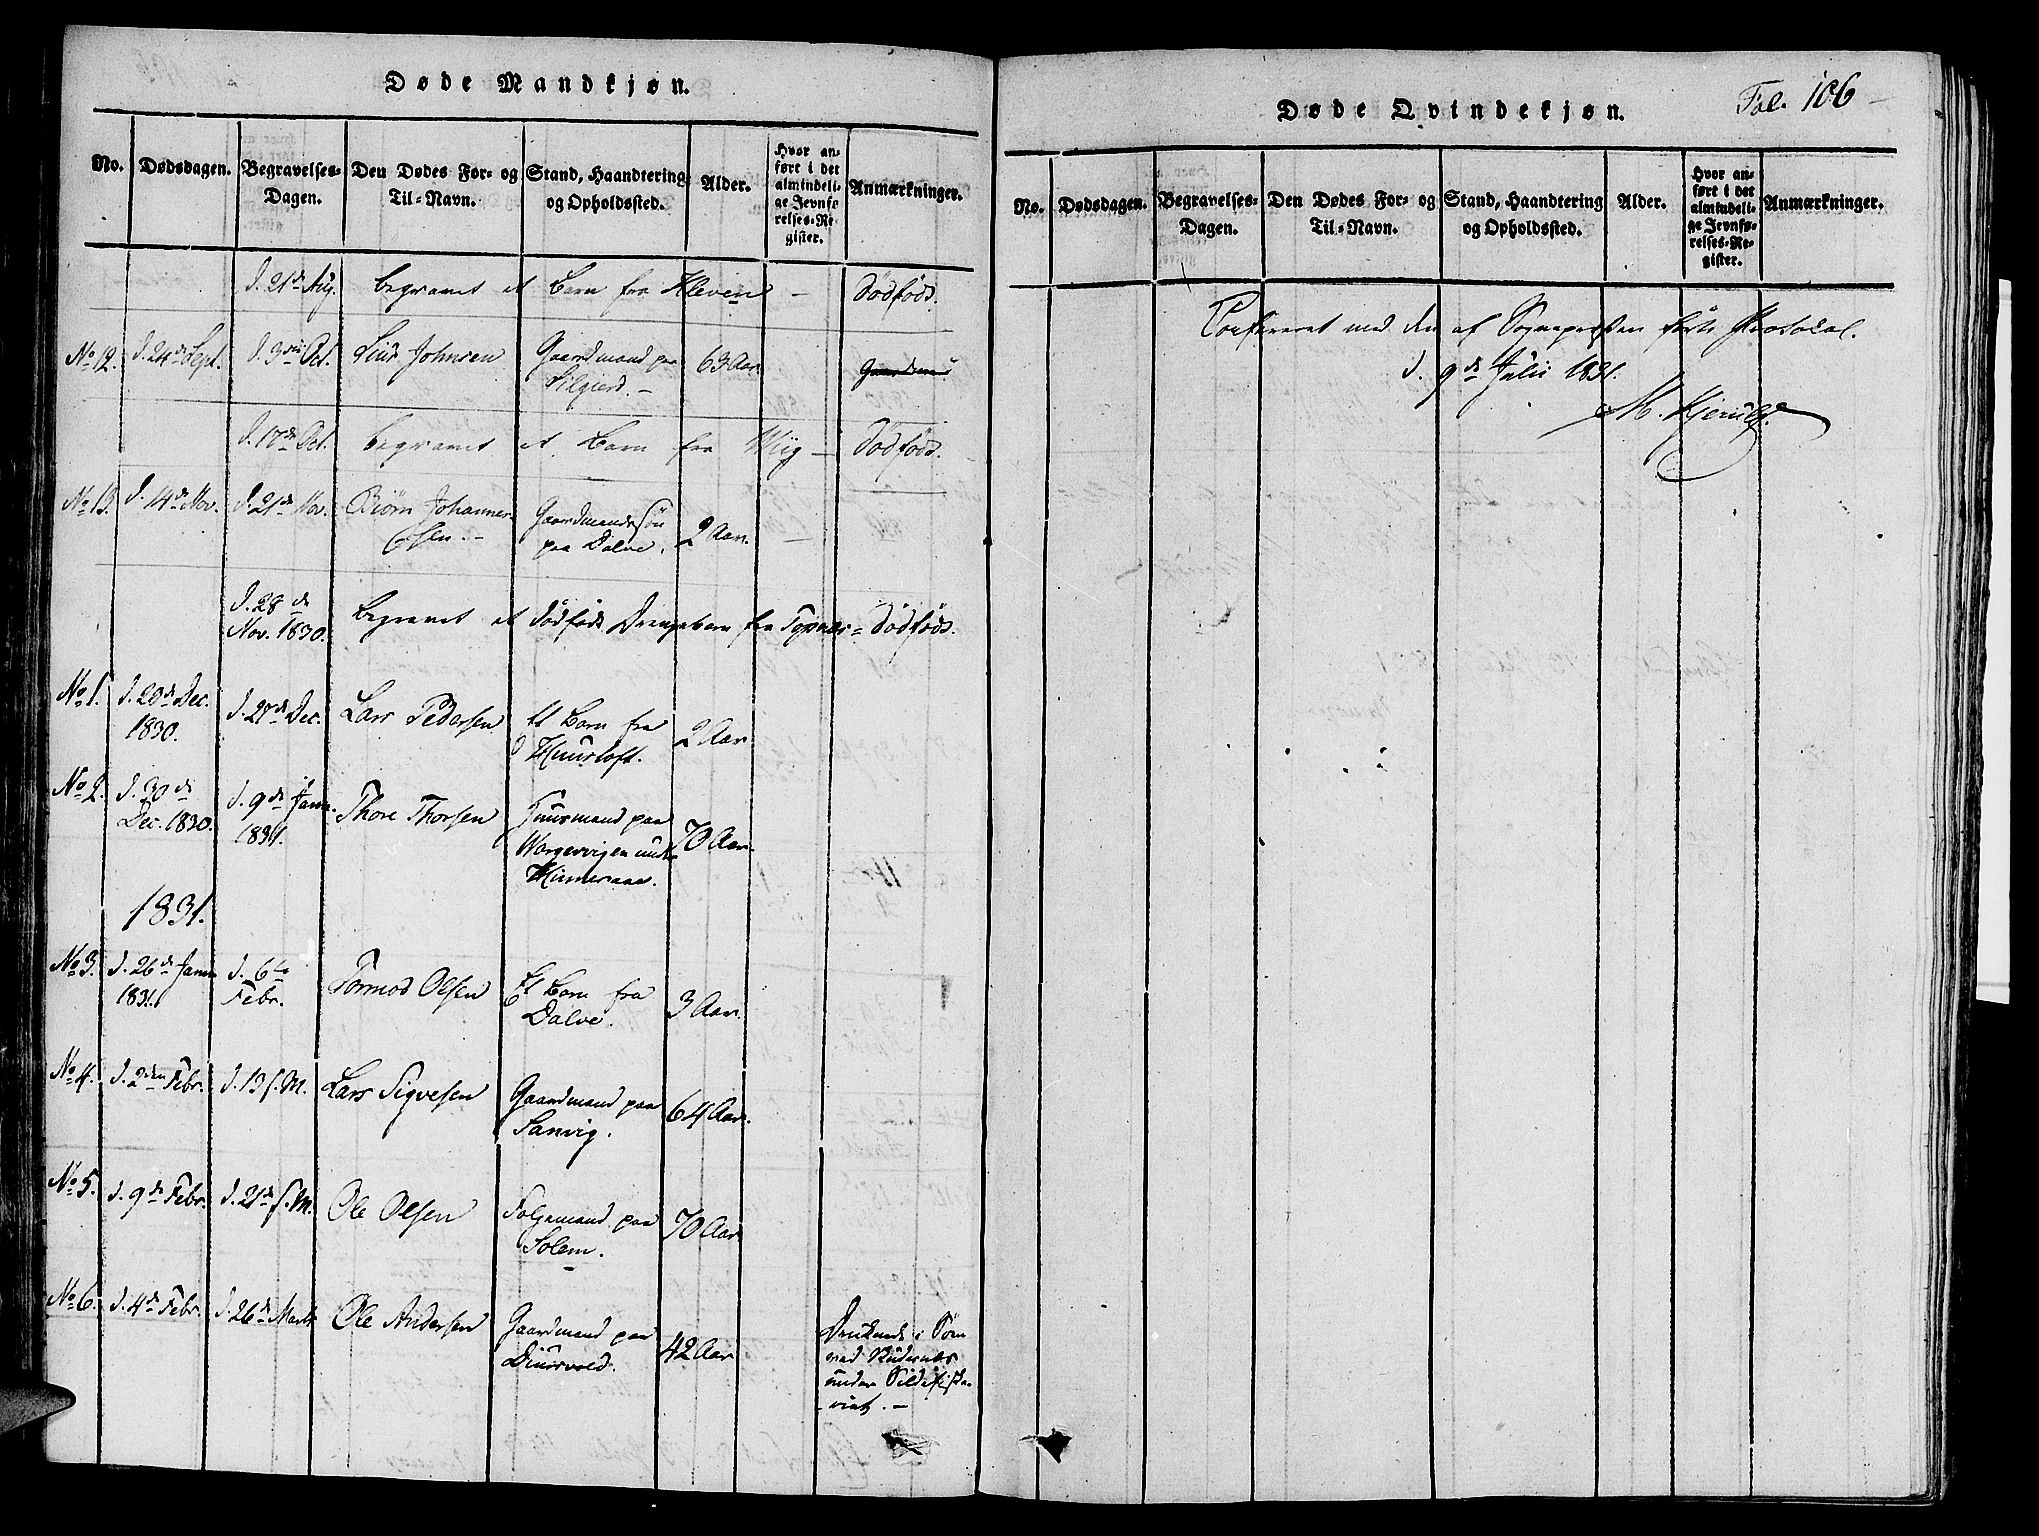 Døde Mandkjøn.
No.
Dødsdagen.
Begravelses-
Dagen.
Den Dødes For- og
Til-Navn.
Stand, Haandtering
og Opholdssted.
Alder.
Hvor an-
ført i det
almindeli-
ge Jevnfø
relses-Re-
gister.
Anmærkninger.
d. 21de Aug. begravet et Barn fra Kleven — dødfødt.
No 12. d. 24de Sept. d. 3die Oct. Johnsen Gaardmand paa 63 Aar.
d. 17de Oct. begravet et Barn fra Wiig — dødfødt.
No 13. d. 14de Nov. d. 21de Nov. Biørn Johannes- Gaardmandssøn 2 Aar.
sen. — paa Dalve.
d. 28de
Nov. 1830. begravet et dødfødt Drengebarn fra Topnes = dødfødt.
No 1. d. 20de Dec. d. 27de Dec. Lars Pedersen Et Barn fra 2 Aar
1830.
No 2. d. 30de d. 9de Janr. Thore Thorsen Huusmand paa 70 Aar.
Dec. 1830. 1831. Wargevigen under
1831.
No 3. d. 26de Janr. d. 6te Tormod Olsen Et Barn fra 3 Aar.
1831. Febr. Dalve.
No 4. d. 2den Febr. d. 13 s. M. Lars Sigvesen Gaardmand paa 64 Aar.
Sanvig.
No 5. d. 9de Febr. d. 21de s. M. Ole Olsen Folgemand paa 70 Aar
Solem.
No 6. d. 4de Febr. d. 26de Marts Ole Andersen Gaardmand paa 42 Aar Druknede i Søen
Diursvold. ved
under Sildefiske-
riet. —
Døde Qvindekjøn.
Fol. 106
No.
Dødsdagen.
Begravelses-
Dagen.
Den Dødes For- og
Til-Navn.
Stand, Haandtering
og Opholdssted.
Alder.
Hvor an-
ført i det
almindeli-
ge Jevnfø-
relses-Re-
gister.
Anmærkninger.
Confereret med den af Sognepræsten førte Protocol.
d. 9de Julii 1831.
M. Kjerulf.